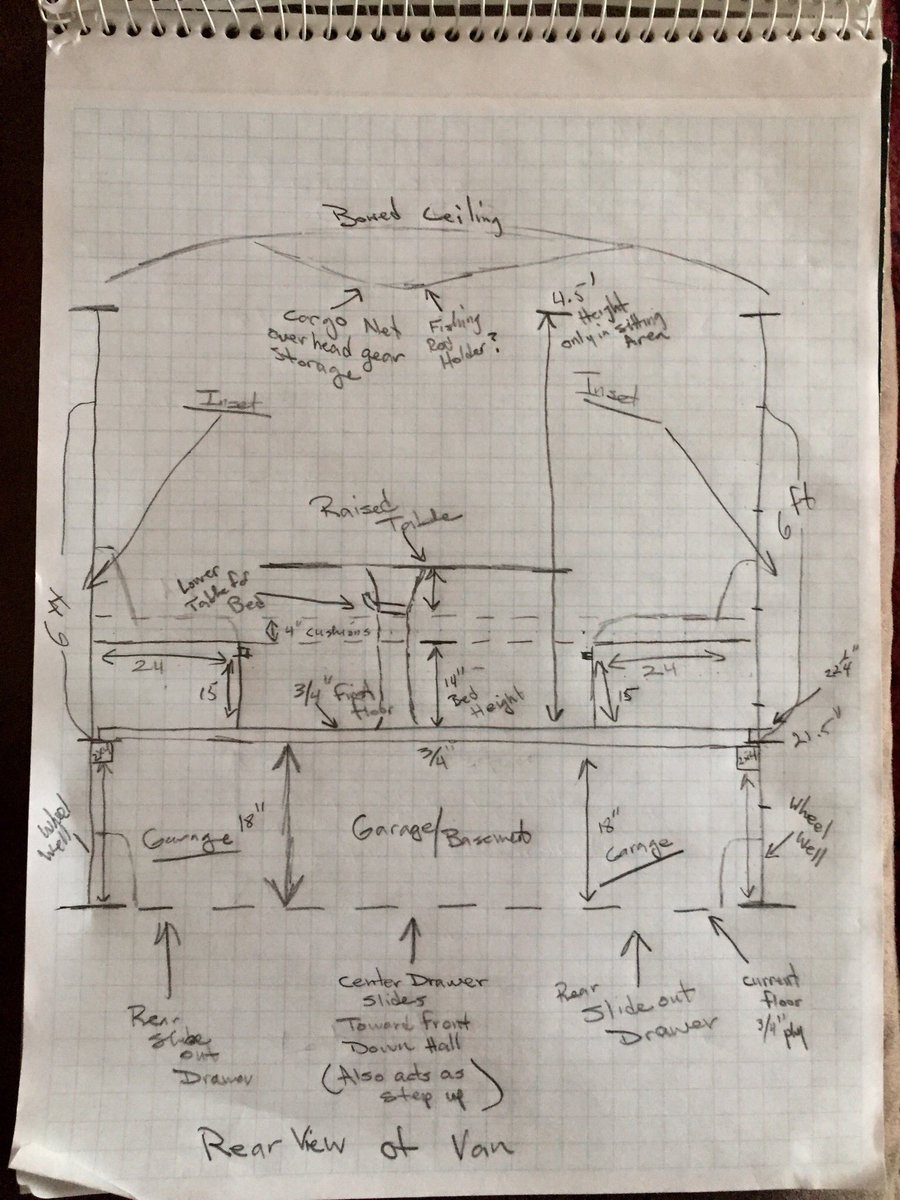 Bowed Ceiling
Cargo Net
overhead gear
storage
Fishing
Rod
Holder?
4.5'
Height
only in sitting
Area
Inset
Inset
Raised
Table
Lower
Table for
Bed
6 ft
6 ft
4" cushions
24
24
15
15
3/4" First
floor
14"
Bed
Height
21.5"
3/4"
2x4
2x4
Wheel
Well
Garage
18"
Garage/Basement
18"
Garage
Wheel
Well
Rear
Slide
out
Drawer
Center Drawer
Slides
Toward Front
Down Hall
(Also acts as
step up)
Rear
Slide out
Drawer
current
floor
3/4" ply
Rear View of Van